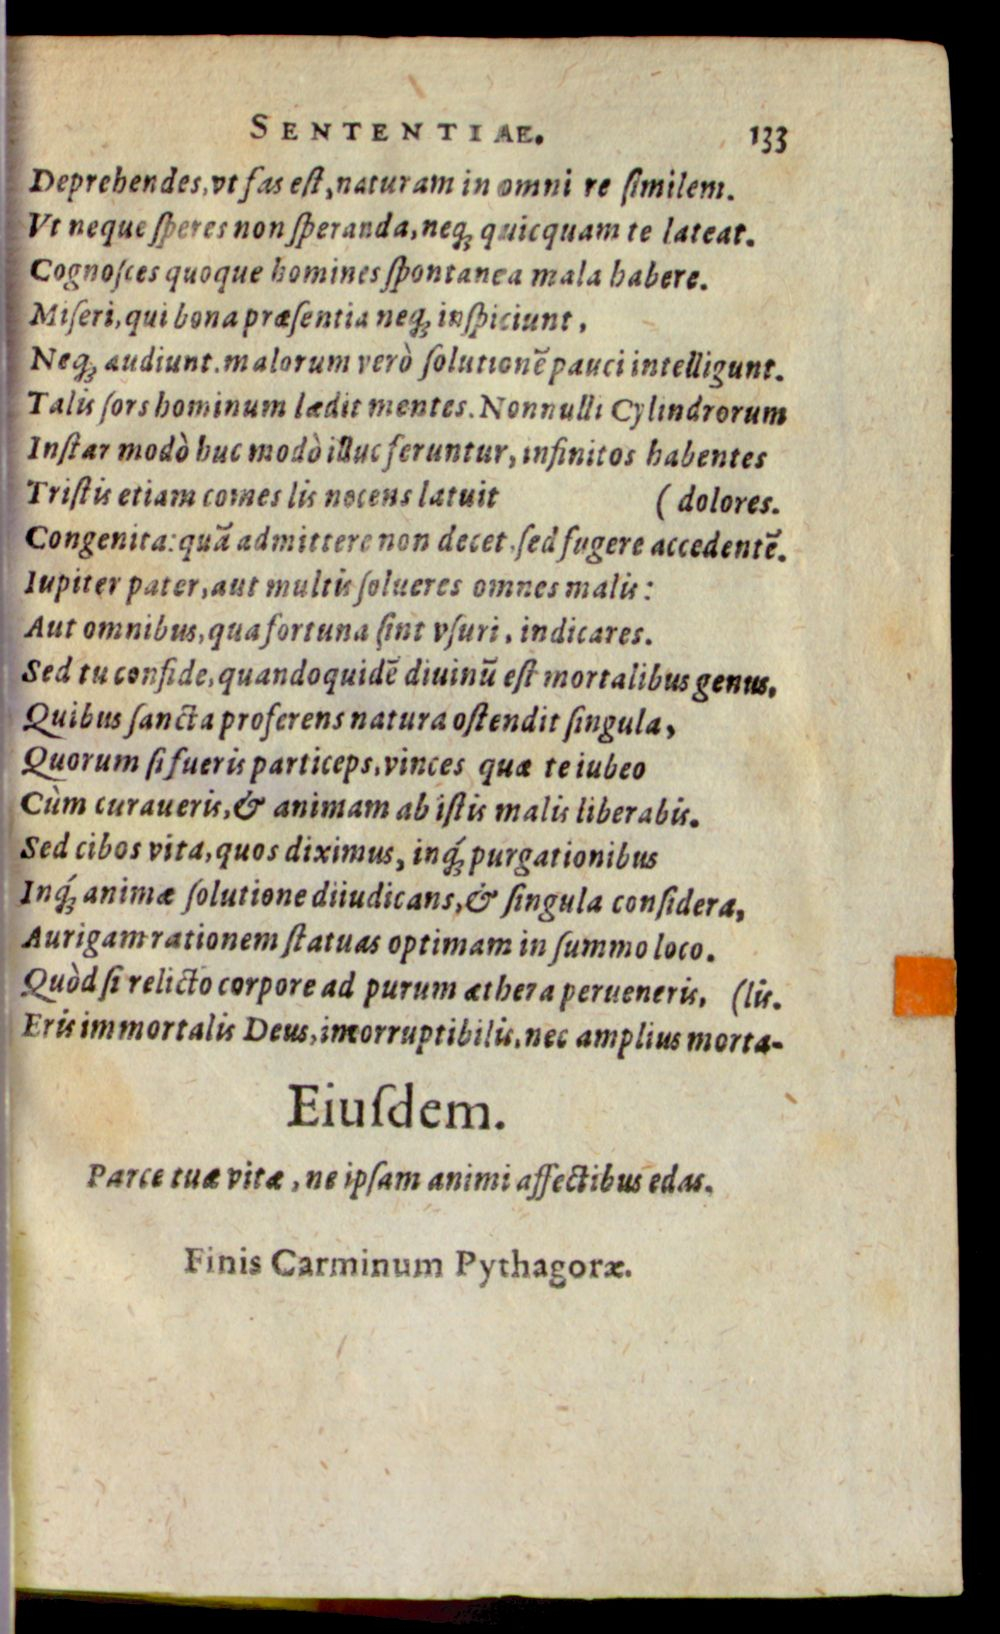 SENTENTIAE. 133
Deprehendes, vt fas eſt, naturam in omni re ſimilem.
Vt neque ſperes non ſperanda, neq; quicquam te lateat.
Cognoſces quoque homines ſpontanea mala habere.
Miſeri, qui bona præſentia neq; inſpiciunt,
Neq; audiunt. malorum verò ſolutionē pauci intelligunt.
Talis ſors hominum lædit mentes. Nonnulli Cylindrorum
Inſtar modò huc modò illuc feruntur, infinitos habentes
Triſtis etiam comes lis nocens latuit (dolores.
Congenita: quā admittere non decet, ſed fugere accedentē.
Iupiter pater, aut multis ſolueres omnes malis:
Aut omnibus, qua fortuna ſint vſuri, indicares.
Sed tu confide, quandoquidē diuinū eſt mortalibus genus,
Quibus ſancta proferens natura oſtendit ſingula,
Quorum ſi fueris particeps, vinces quæ te iubeo
Cùm curaueris, & animam ab iſtis malis liberabis.
Sed cibos vita, quos diximus, inq́; purgationibus
Inq́; animæ ſolutione diiudicans, & ſingula conſidera,
Aurigam rationem ſtatuas optimam in ſummo loco.
Quòd ſi relicto corpore ad purum æthera perueneris, (lis.
Eris immortalis Deus, incorruptibilis, nec amplius morta-
Eiuſdem.
Parce tuæ vitæ, ne ipſam animi affectibus edas.
Finis Carminum Pythagoræ.